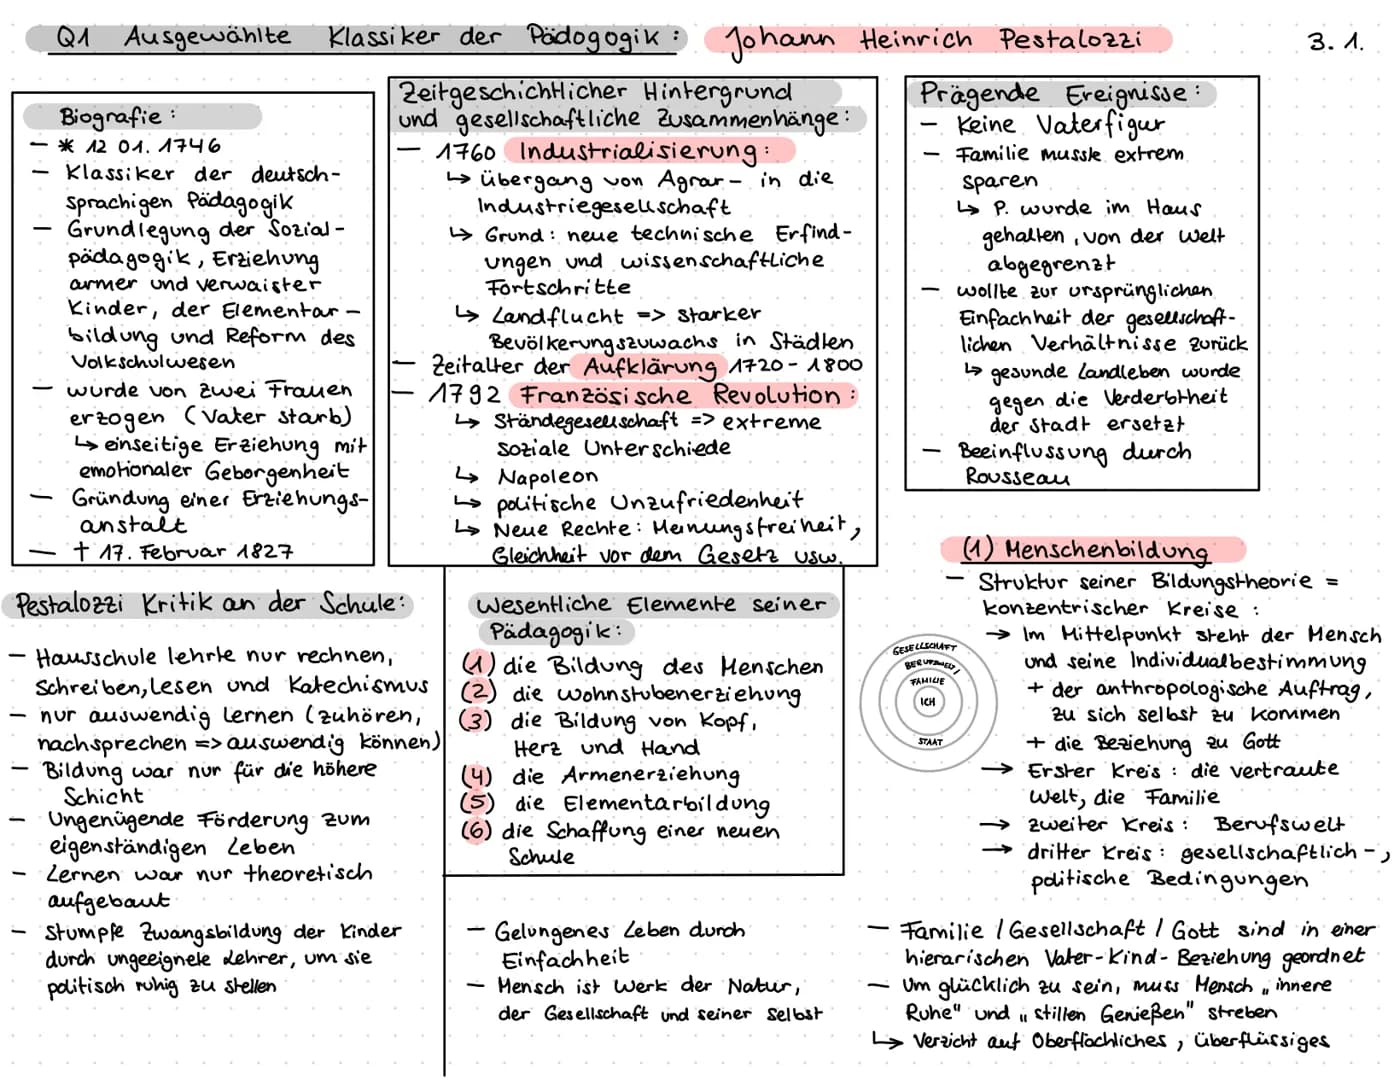 Q1 Ausgewählte Klassiker der Pädogogik: Johann Heinrich Pestalozzi 3.1.
Biografie:
– * 12 01. 1746
– Klassiker der deutsch-
sprachigen Pädagogik
– Grundlegung der Sozial-
pädagogik, Erziehung
armer und verwaister
Kinder, der Elementar-
bildung und Reform des
Volkschulwesen
– wurde von zwei Frauen
erzogen (Vater starb)
↳ einseitige Erziehung mit
emotionaler Geborgenheit
– Gründung einer Erziehungs-
anstalt
– † 17. Februar 1827
Zeitgeschichtlicher Hintergrund
und gesellschaftliche Zusammenhänge:
– 1760 Industrialisierung:
↳ übergang von Agrar- in die
Industriegesellschaft
↳ Grund: neue technische Erfind-
ungen und wissenschaftliche
Fortschritte
↳ Landflucht => starker
Bevölkerungszuwachs in Städten
– Zeitalter der Aufklärung 1720-1800
– 1792 Französische Revolution:
↳ Ständegesellschaft => extreme
soziale Unterschiede
↳ Napoleon
↳ politische Unzufriedenheit
↳ Neue Rechte: Meinungsfreiheit,
Gleichheit vor dem Gesetz usw.
Prägende Ereignisse:
– Keine Vaterfigur
– Familie musste extrem
sparen
↳ P. wurde im Haus
gehalten, von der Welt
abgegrenzt
– wollte zur ursprünglichen
Einfachheit der gesellschaft-
lichen Verhältnisse zurück
↳ gesunde Landleben wurde
gegen die Verderbtheit
der Stadt ersetzt
– Beeinflussung durch
Rousseau
Pestalozzi Kritik an der Schule:
– Hausschule lehrte nur rechnen,
Schreiben, Lesen und Katechismus
– nur auswendig lernen (zuhören,
nachsprechen => auswendig können)
– Bildung war nur für die höhere
Schicht
– Ungenügende Förderung zum
eigenständigen Leben
– Lernen war nur theoretisch
aufgebaut
– Stumpfe Zwangsbildung der Kinder
durch ungeeignete Lehrer, um sie
politisch ruhig zu stellen
Wesentliche Elemente seiner
Pädagogik:
(1) die Bildung des Menschen
(2) die Wohnstubenerziehung
(3) die Bildung von Kopf,
Herz und Hand
(4) die Armenerziehung
(5) die Elementarbildung
(6) die Schaffung einer neuen
Schule
– Gelungenes Leben durch
Einfachheit
– Mensch ist Werk der Natur,
der Gesellschaft und seiner Selbst
(1) Menschenbildung
– Struktur seiner Bildungstheorie =
konzentrischer Kreise:
→ Im Mittelpunkt steht der Mensch
und seine Individualbestimmung
+ der anthropologische Auftrag,
zu sich selbst zu kommen
+ die Beziehung zu Gott
→ Erster Kreis: die vertraute
Welt, die Familie
→ zweiter Kreis: Berufswelt
→ dritter Kreis: gesellschaftlich-,
politische Bedingungen
GESELLSCHAFT
BERUFSWELT
FAMILIE
ICH
STAAT
– Familie / Gesellschaft / Gott sind in einer
hierarischen Vater-Kind-Beziehung geordnet
– Um glücklich zu sein, muss Mensch „innere
Ruhe" und „stillen Genießen" streben
↳ Verzicht auf Oberflächliches, überflüssiges